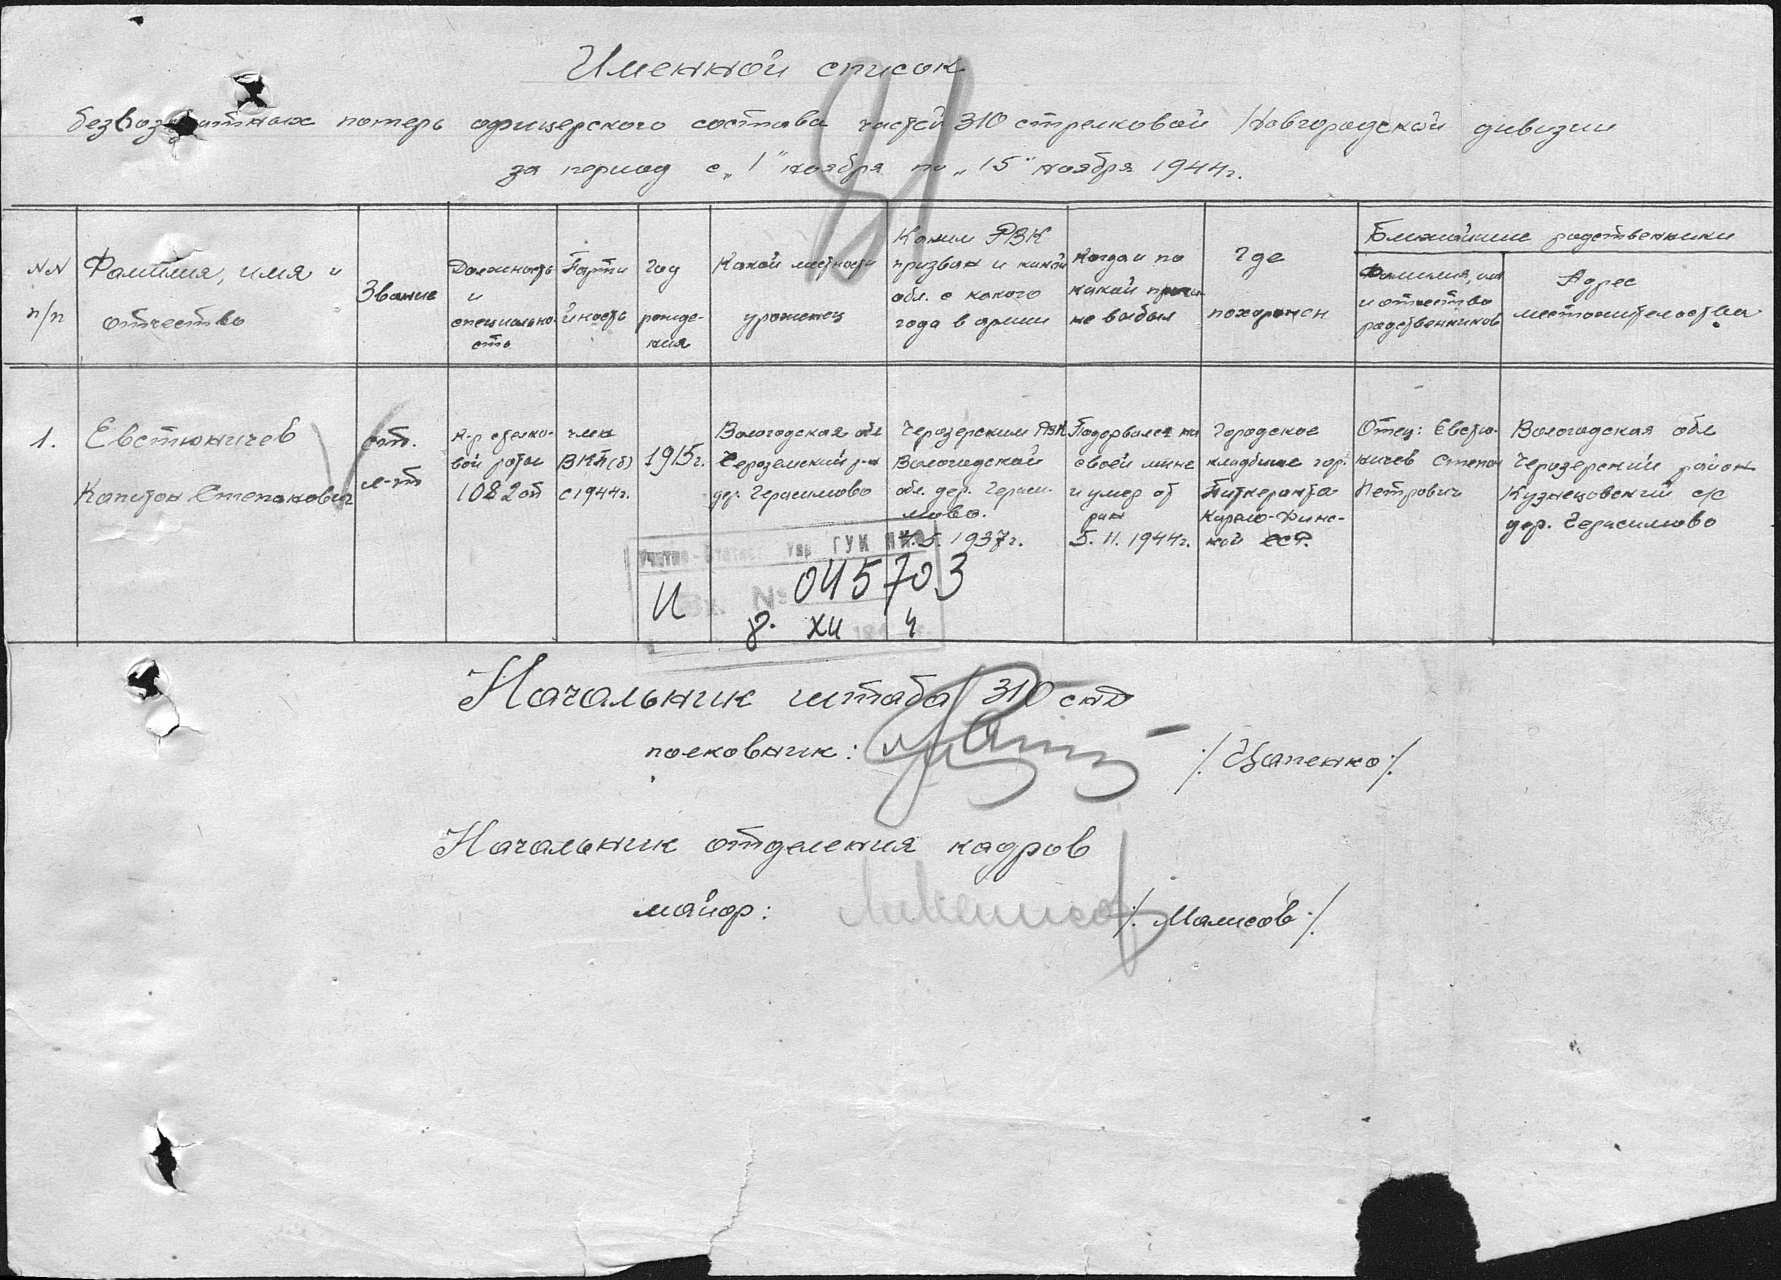 Именной список
безвозвратных потерь офицерского состава частей 310 стрелковой Новгородской дивизии
за период с „1" ноября по „15" ноября 1944г.
NN
п/п
Фамилия, имя и
отчество
Звание
Должность
и
специально-
сть
Парти
йность
Год
рожде-
ния
Какой местности
уроженец
Каким РВК
призван и какой
обл. с какого
года в армии
Когда и по
какой причи-
не выбыл
Где
похоронен
Ближайшие родственники
Фамилия, имя
и отчество
родственников
Адрес
местожительства
1.
Евстюничев
Капитон Степанович
ст.
л-т
к-р стрелко-
вой роты
1082 сп
член
ВКП(б)
с 1944г.
1915г.
Вологодская обл
Чероземский р-н
дер. Герасимово
Черозерским РВК
Вологодской
обл. дер. Гераси-
мово.
5. 1937г.
Подорвался на
своей мине
и умер от
ран
5. 11. 1944г.
Городское
кладбище гор.
Питкеранта
Карело-Финс-
кой ССР.
Отец: Евстю-
ничев Степан
Петрович
Вологодская обл
Черозерский район
Кузнецовский с/с
дер. Герасимово
Учетно-Статист. Упр ГУК НКО
И Вх. № 045703
8. XII 4
Начальник штаба 310 снд
полковник: /. Цапенко ./
Начальник отделения кадров
майор: /. Малисов ./